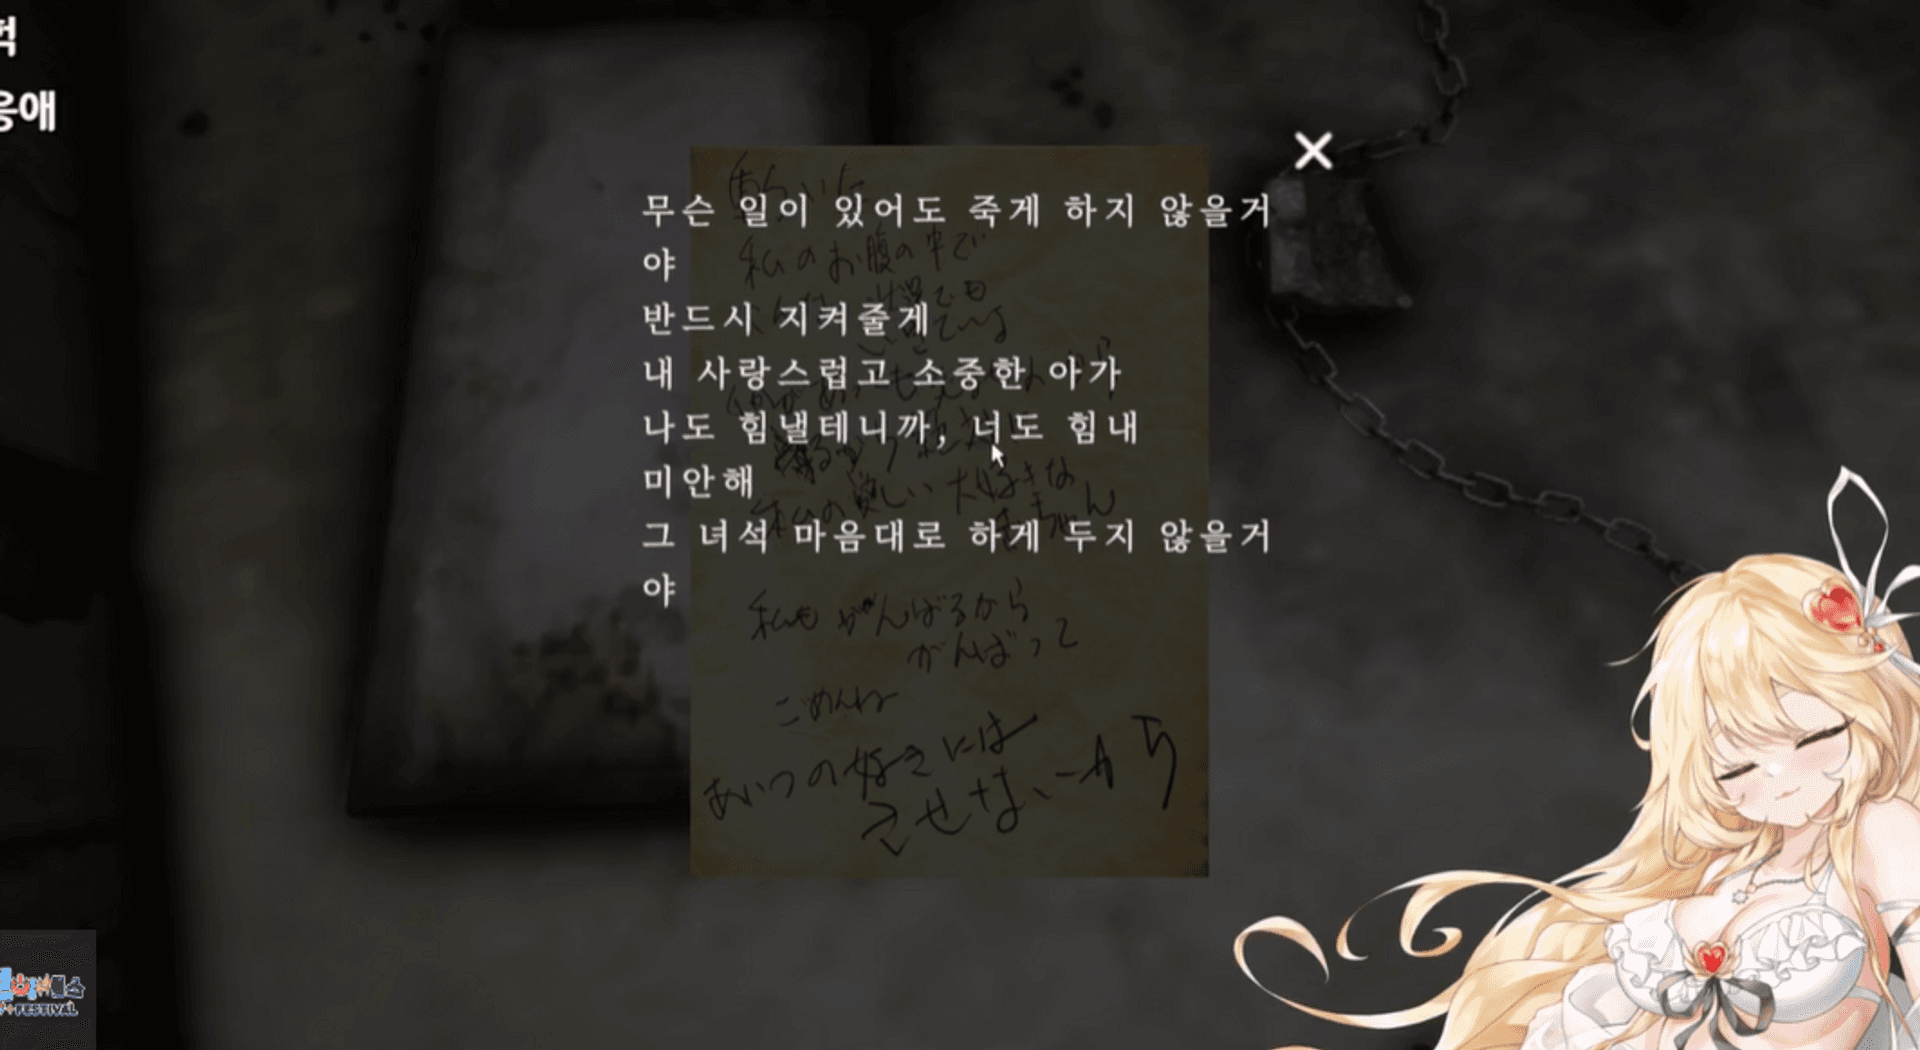 헉
응애
무슨 일이 있어도 죽게 하지 않을거
야
반드시 지켜줄게
내 사랑스럽고 소중한 아가
나도 힘낼테니까, 너도 힘내
미안해
그 녀석 마음대로 하게 두지 않을거
야
動いた
私のお腹の中で
私の愛しい大好きな
赤ちゃん
私もがんばるから
がんばって
ごめんね
あいつの好きには
させないから
FESTIVAL